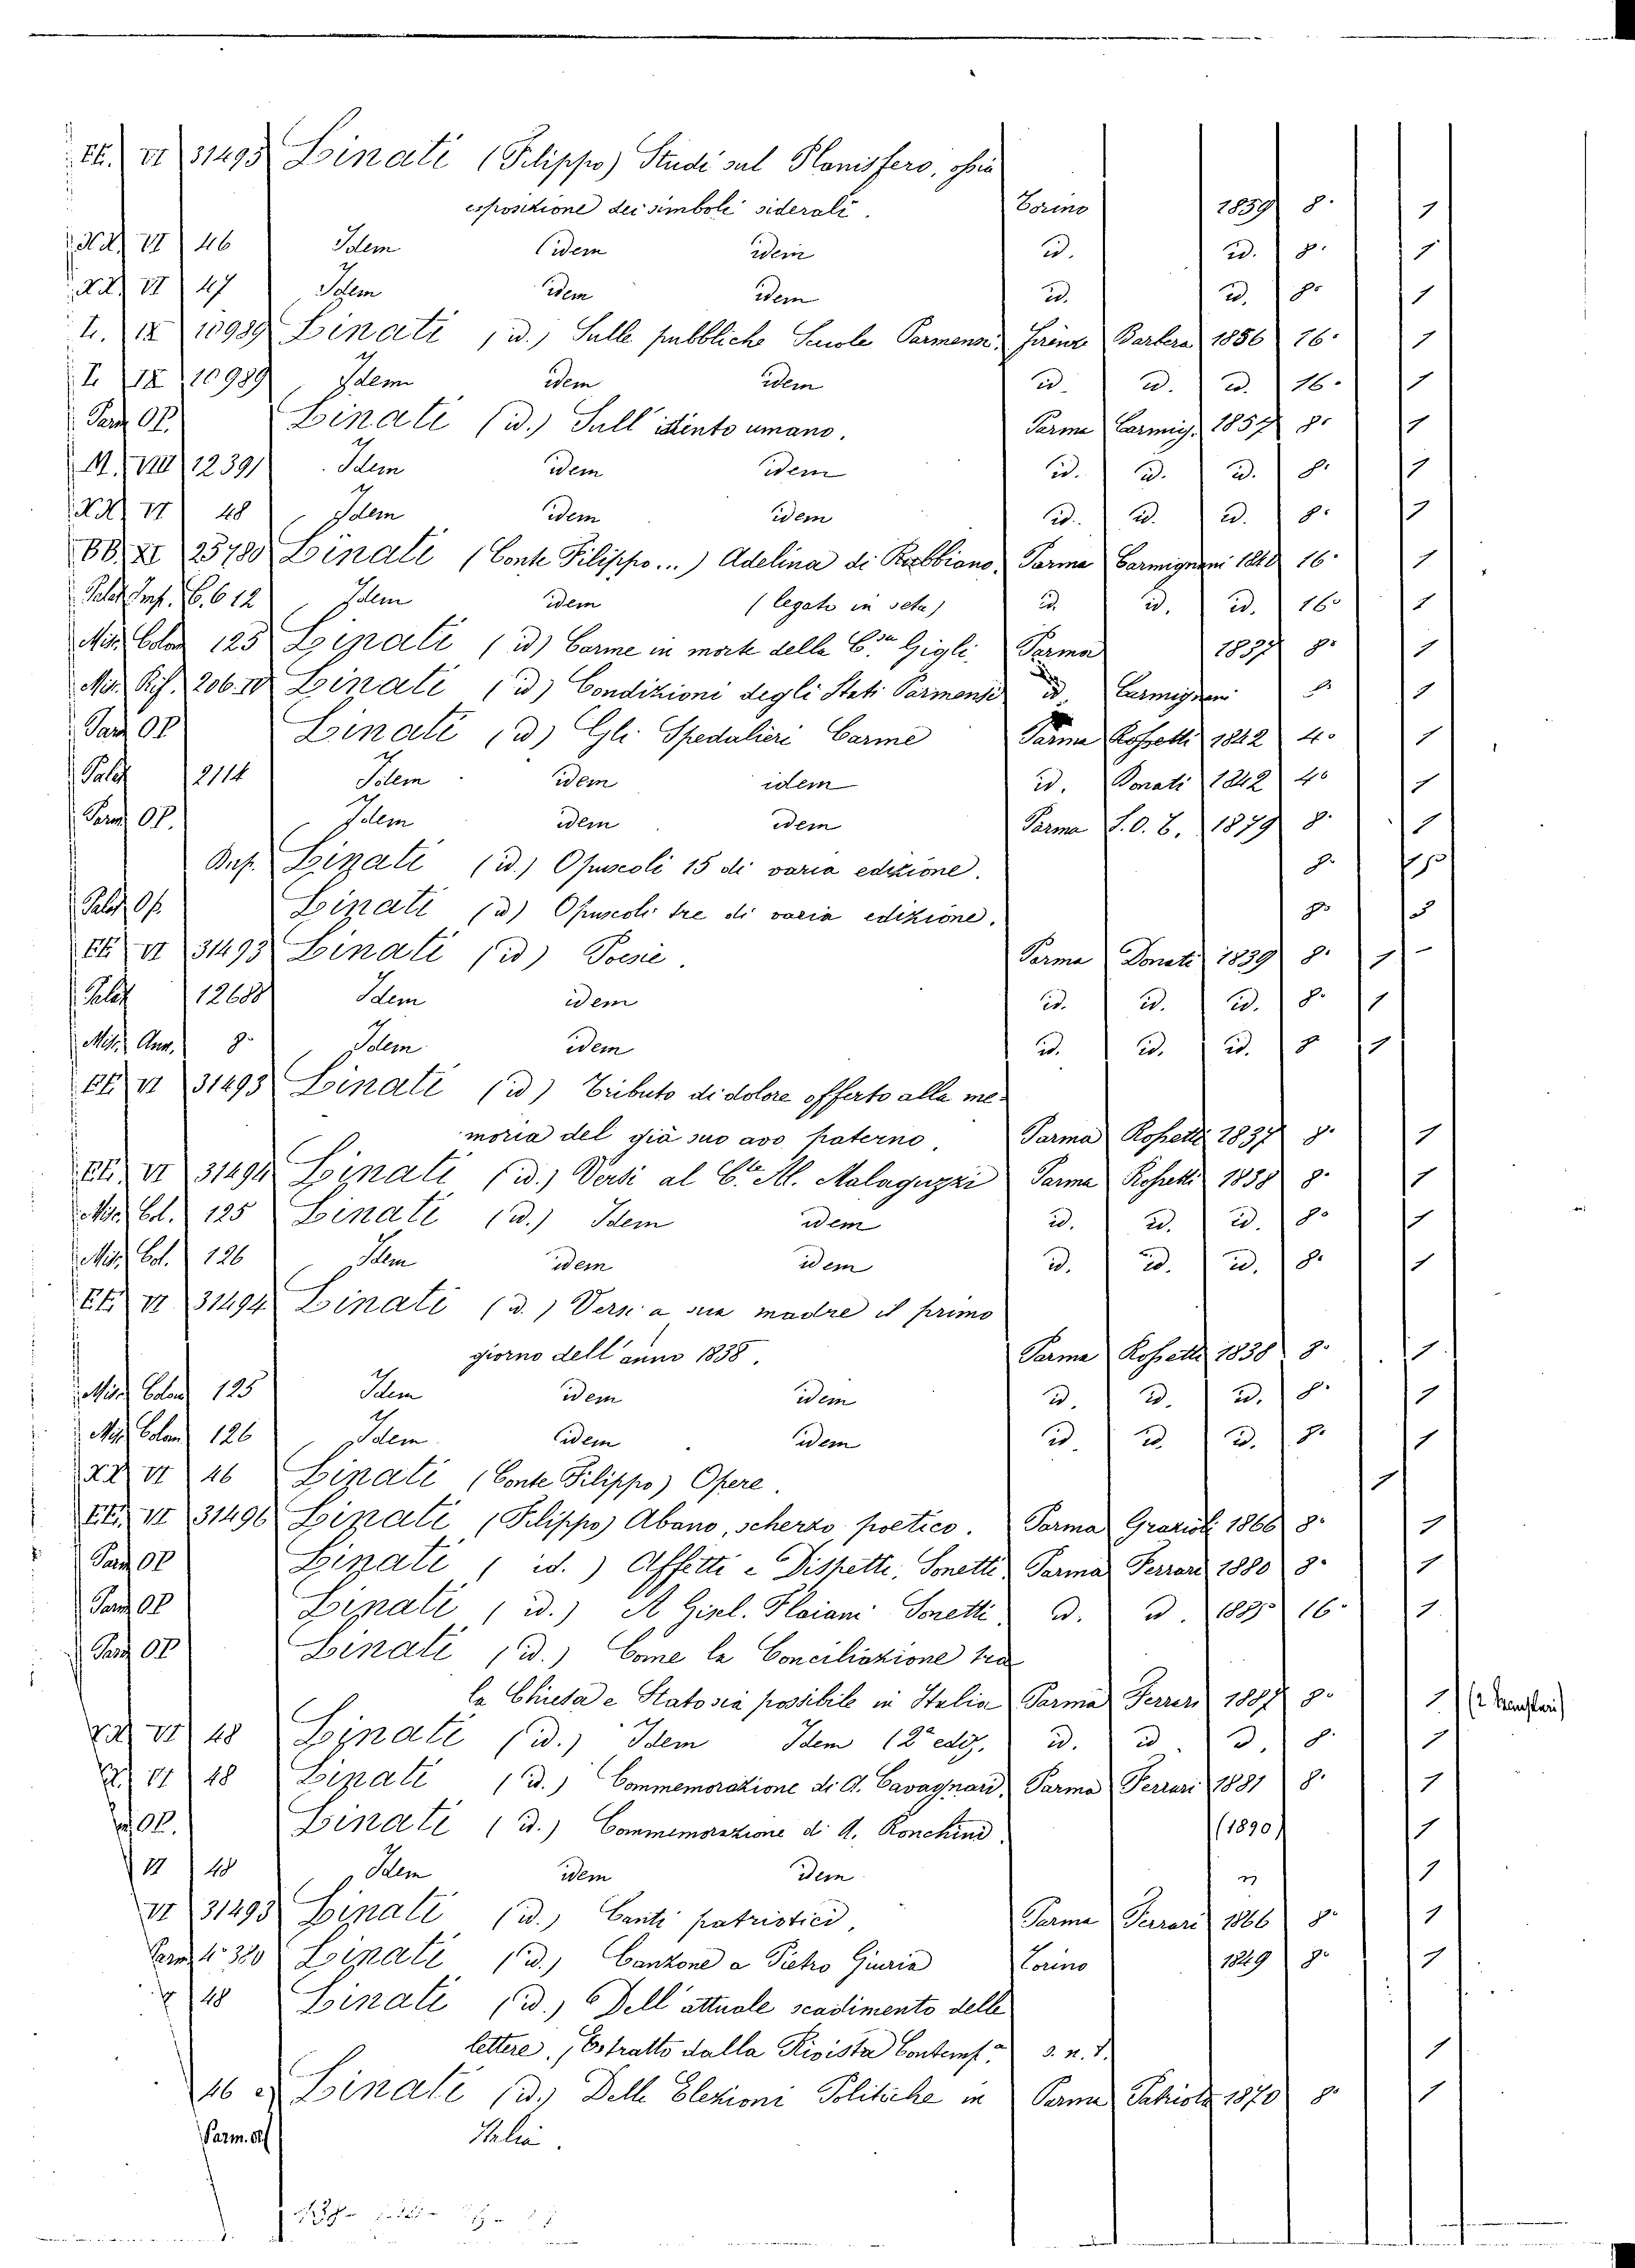 EE. VI 31495 Linati (Filippo) Studi sul Planisfero, ossia
esposizione dei simboli siderali. Torino 1859 8. 1
XX VI 46 Idem idem idem id. id. 8. 1
XX VI 47 Idem idem idem id. id. 8. 1
L. IX 10989 Linati (id.) Sulle pubbliche Scuole Parmensi. Firenze Barbera 1856 16. 1
L IX 10989 Idem idem idem id. id. id. 16. 1
Parm OP. Linati (id.) Sull' istinto umano. Parma Carmig. 1857 8. 1
M. VIII 12391 Idem idem idem id. id. id. 8. 1
XX VI 48 Idem idem idem id. id. id. 8. 1
BB. XI 25780 Linati (Conte Filippo...) Adelina di Rubbiano. Parma Carmignani 1840 16. 1
Palat 612 Idem idem (legato in seta) id. id. id. 16. 1
Misc. Colom 125 Linati (id) Carme in morte della C.sa Gigli. Parma 1837 8. 1
Mis. Rif. 206.10 Linati (id) Condizioni degli Stati Parmensi id. Carmignani 8 1
Parm OP Linati (id) Gli Spedalieri Carme Parma Rossetti 1842 4. 1
Palat 12114 Idem idem idem id. Donati 1842 4. 1
Parm OP. Idem idem idem Parma 1879 8. 1
Linati (id.) Opuscoli 15 di varia edizione. 8. 15
Palat Op. Linati (id) Opuscoli tre di varia edizione. 8. 3
EE VI 31493 Linati (id) Poesie. Parma Donati 1839 8. 1
Palat 12688 Idem idem id. id. id. 8. 1
Misc. Ann. 8. Idem idem id. id. id. 8 1
EE VI 31493 Linati (id) Tributo di dolore offerto alla me-
moria del già suo avo paterno. Parma Rossetti 1837 8. 1
EE. VI 31494 Linati (id.) Versi al C.te M. Malaguzzi Parma Rossetti 1838 8. 1
Misc. Col. 125 Linati (id.) Idem idem id. id. id. 8. 1
Misc. Col. 126 Idem idem idem id. id. id. 8. 1
EE VI 31494 Linati (id.) Versi a sua madre il primo
giorno dell' anno 1838. Parma Rossetti 1838 8. 1
Misc. Colom 125 Idem idem idem id. id. id. 8. 1
Misc. Colom 126 Idem idem idem id. id. id. 8. 1
XX VI 46 Linati (Conte Filippo) Opere. 1
EE. VI 31496 Linati (Filippo) Abano, scherzo poetico. Parma Grazioli 1866 8. 1
Parm OP Linati (id.) Affetti e Dispetti, Sonetti Parma Ferrari 1880 8. 1
Parm OP Linati (id.) A Gisl. Flaiani Sonetti id. id. 16. 1
Parm OP Linati (id.) Come la Conciliazione tra
la Chiesa e Stato sia possibile in Italia Parma Ferrari 1887 8. 1 (2 esemplari)
XX VI 48 Linati (id.) Idem Idem (2.a ediz. id. id. id. 8. 1
VI 48 Linati (id.) Commemorazione di A. Cavagnari. Parma Ferrari 1881 8. 1
OP. Linati (id.) Commemorazione di A. Ronchini. (1890) 1
VI 48 Idem idem idem " 1
VI 31493 Linati (id.) Canti patristici. Parma Ferrari 1866 8. 1
Parm 4° 320 Linati (id.) Canzone a Pietro Giuria Torino 1849 8. 1
48 Linati (id.) Dell' attuale scadimento delle
lettere. (Estratto dalla Rivista Contemp.a s. n. t. 1
46 Linati (id.) Delle Elezioni Politiche in Parma 1870 8. 1
Parm. op Italia.